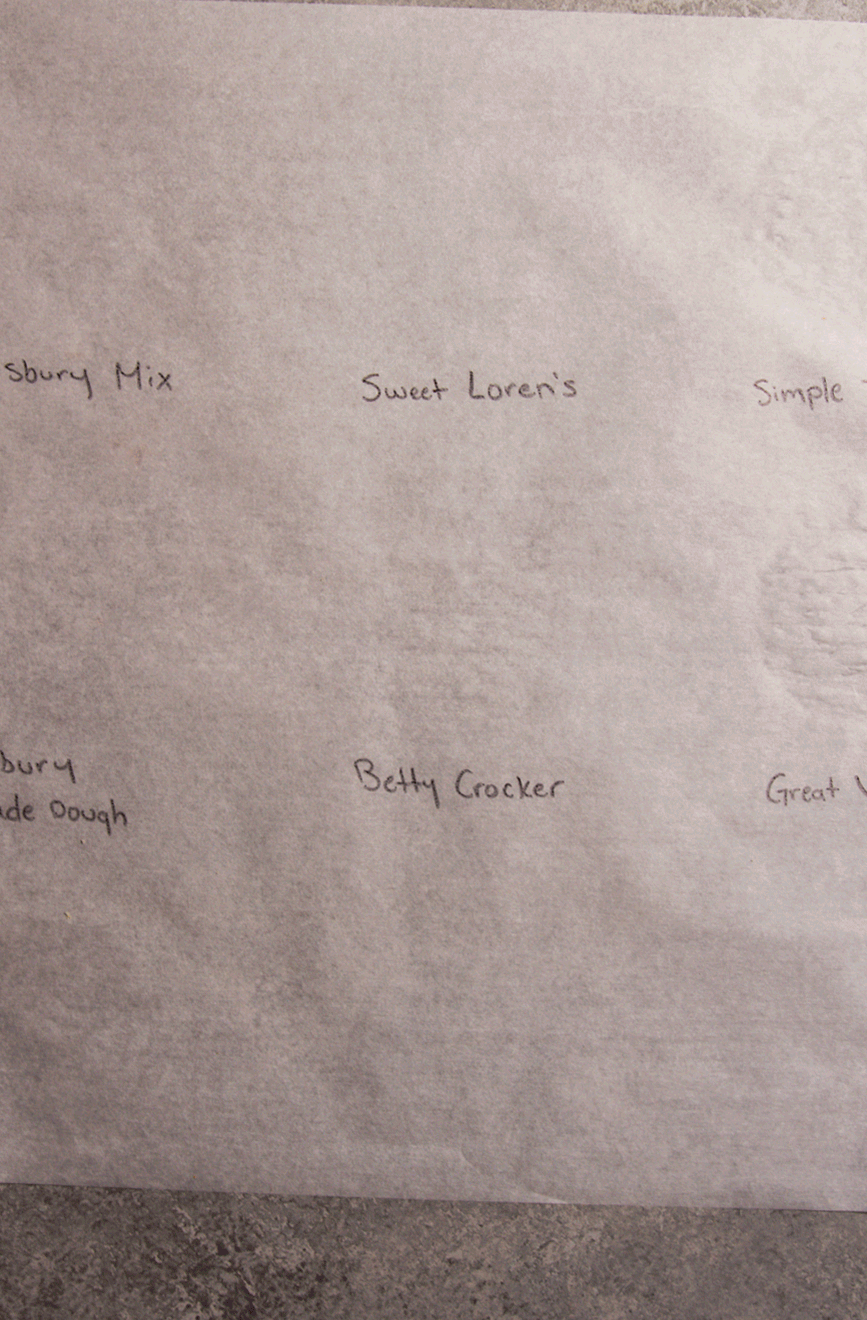 sbury Mix
Sweet Loren's
Simple
bury
ade Dough
Betty Crocker
Great